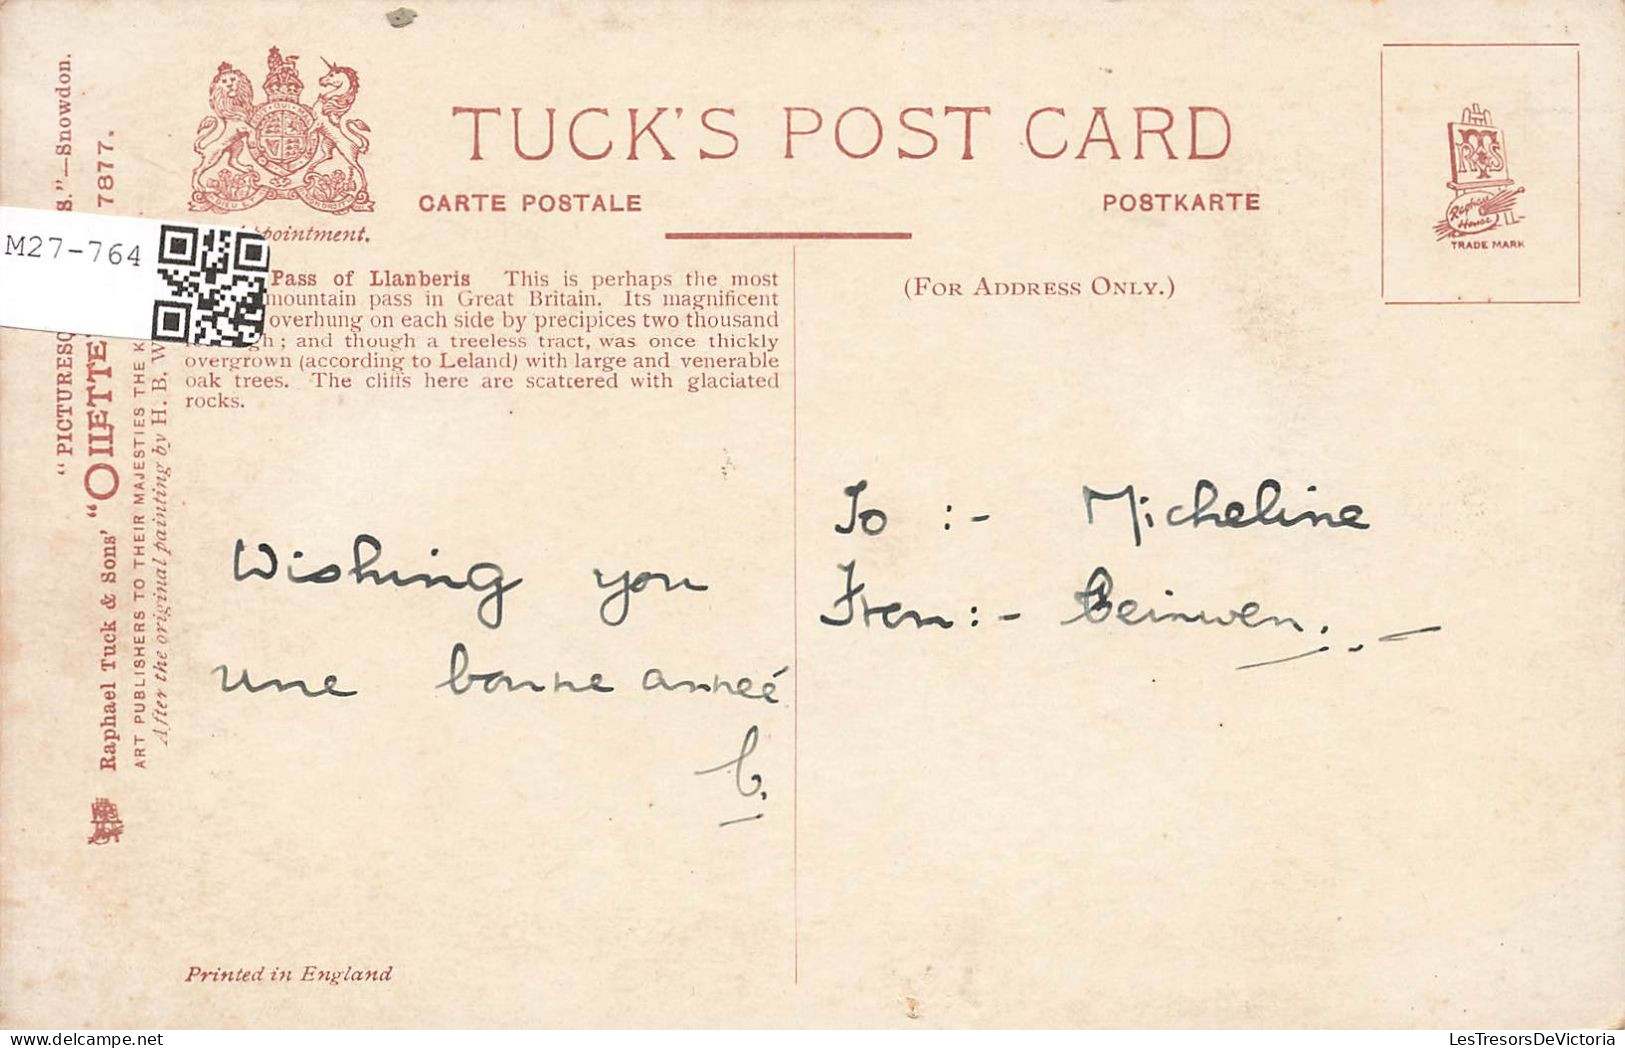 TUCK'S POST CARD
CARTE POSTALE
POSTKARTE
Appointment.
TRADE MARK
(FOR ADDRESS ONLY.)
Pass of Llanberis This is perhaps the most
mountain pass in Great Britain. Its magnificent
overhung on each side by precipices two thousand
; and though a treeless tract, was once thickly
overgrown (according to Leland) with large and venerable
oak trees. The cliffs here are scattered with glaciated
rocks.
M27-764
S."—Snowdon.
7877.
Raphael Tuck & Sons' "OILETTE
ART PUBLISHERS TO THEIR MAJESTIES THE
After the original painting by H. B. W
Wishing you
une bonne anneé
To :- Micheline
From :-
Printed in England
LesTresorsDeVictoria